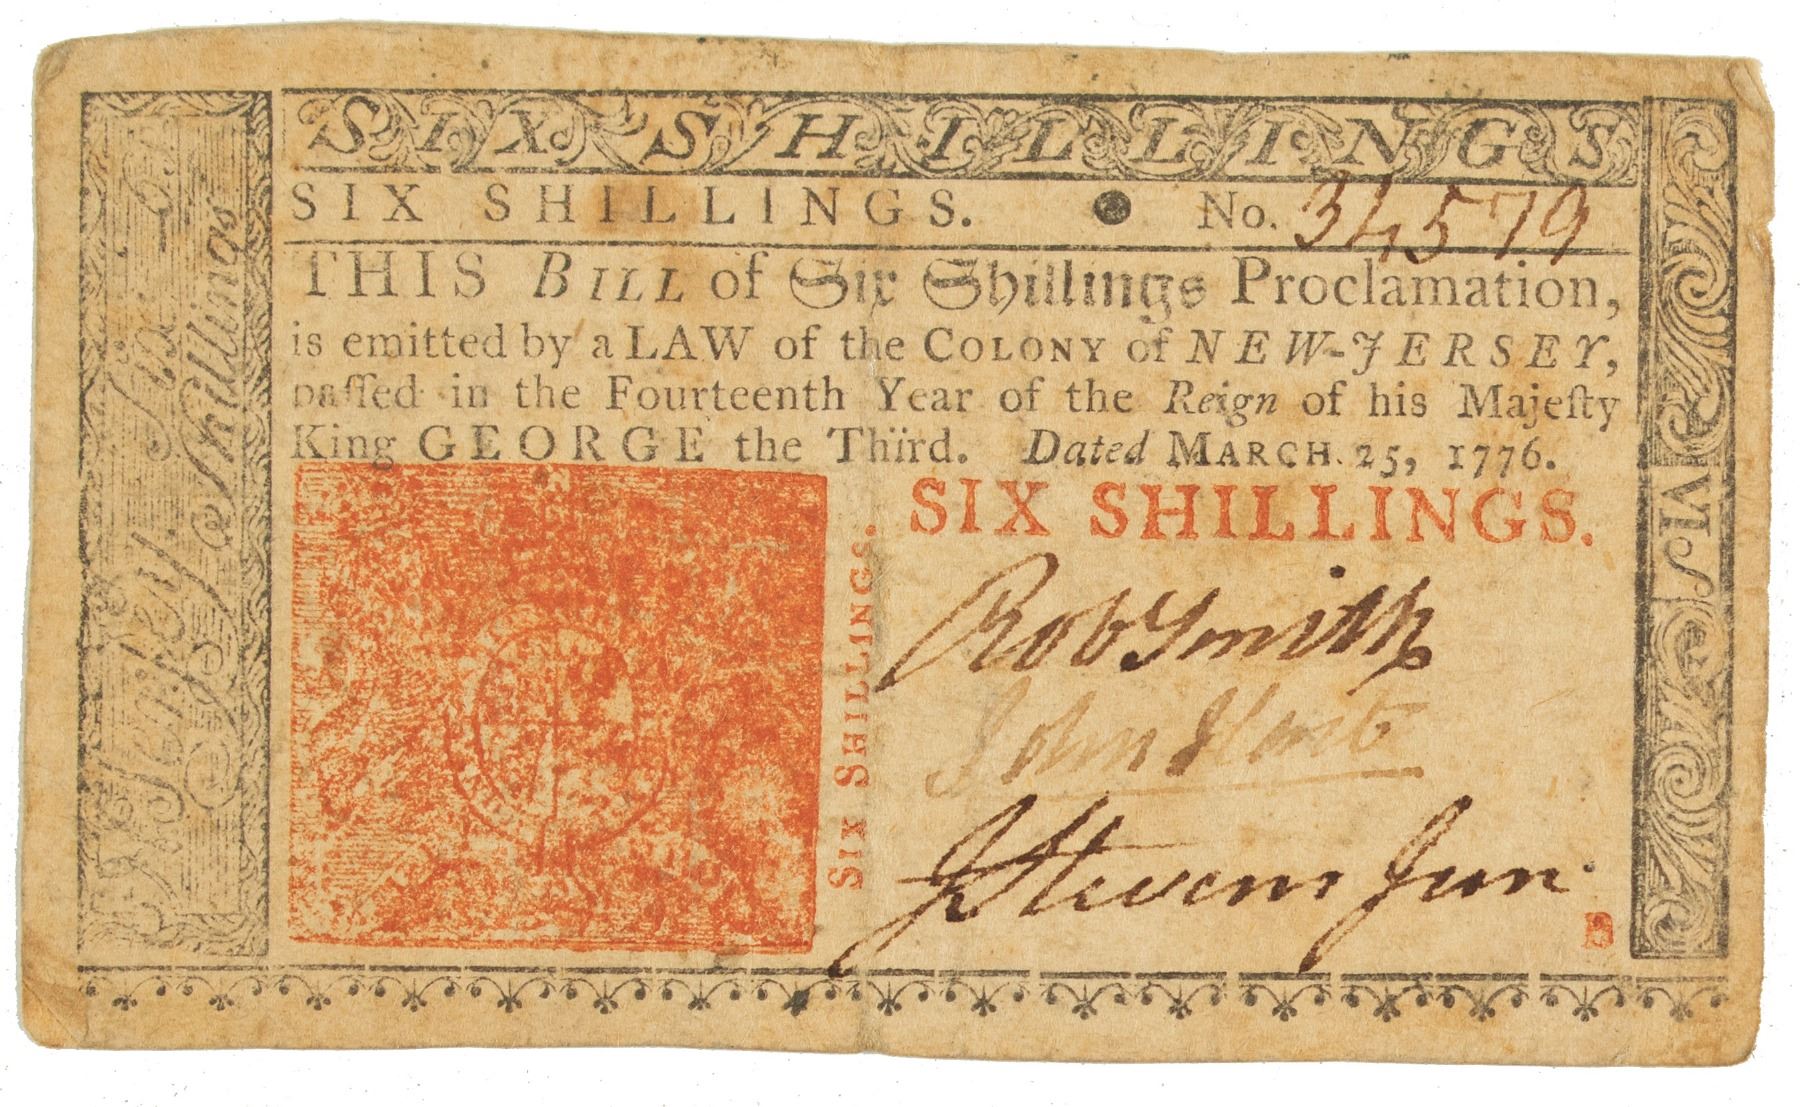 SIX SHILLINGS
SIX SHILLINGS. No. 34579
THIS BILL of Six Shillings Proclamation,
is emitted by a LAW of the COLONY of NEW-JERSEY,
paſſed in the Fourteenth Year of the Reign of his Majeſty
King GEORGE the Third. Dated MARCH 25, 1776.
SIX SHILLINGS.
SIX SHILLINGS.
Rob Smith
John Hart
J Stevens Jun.
B
VI S
Six Shillings
Jersey